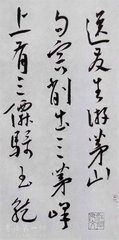 送友生游茅山
句容削出三茅峰
上有三僊騎玉龍